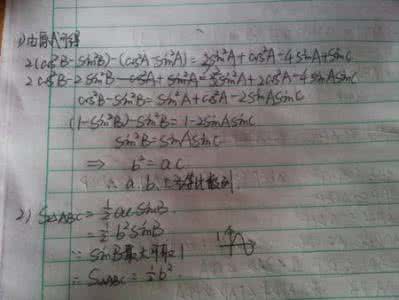 1)由原式可得
2(cos²B-sin²B)-(cos²A-sin²A)=3sin²A+cos²A-4sinAsinC
2cos²B-2sin²B-cos²A+sin²A=3sin²A+cos²A-4sinAsinC
cos²B-sin²B=sin²A+cos²A-2sinAsinC
(1-sin²B)-sin²B=1-2sinAsinC
sin²B=sinAsinC
⇒ b²=ac
∴ a.b.c
2) S△ABC=½acsinB
=½b²sinB
∵sinB最大可取1
∴S△ABC=½b²